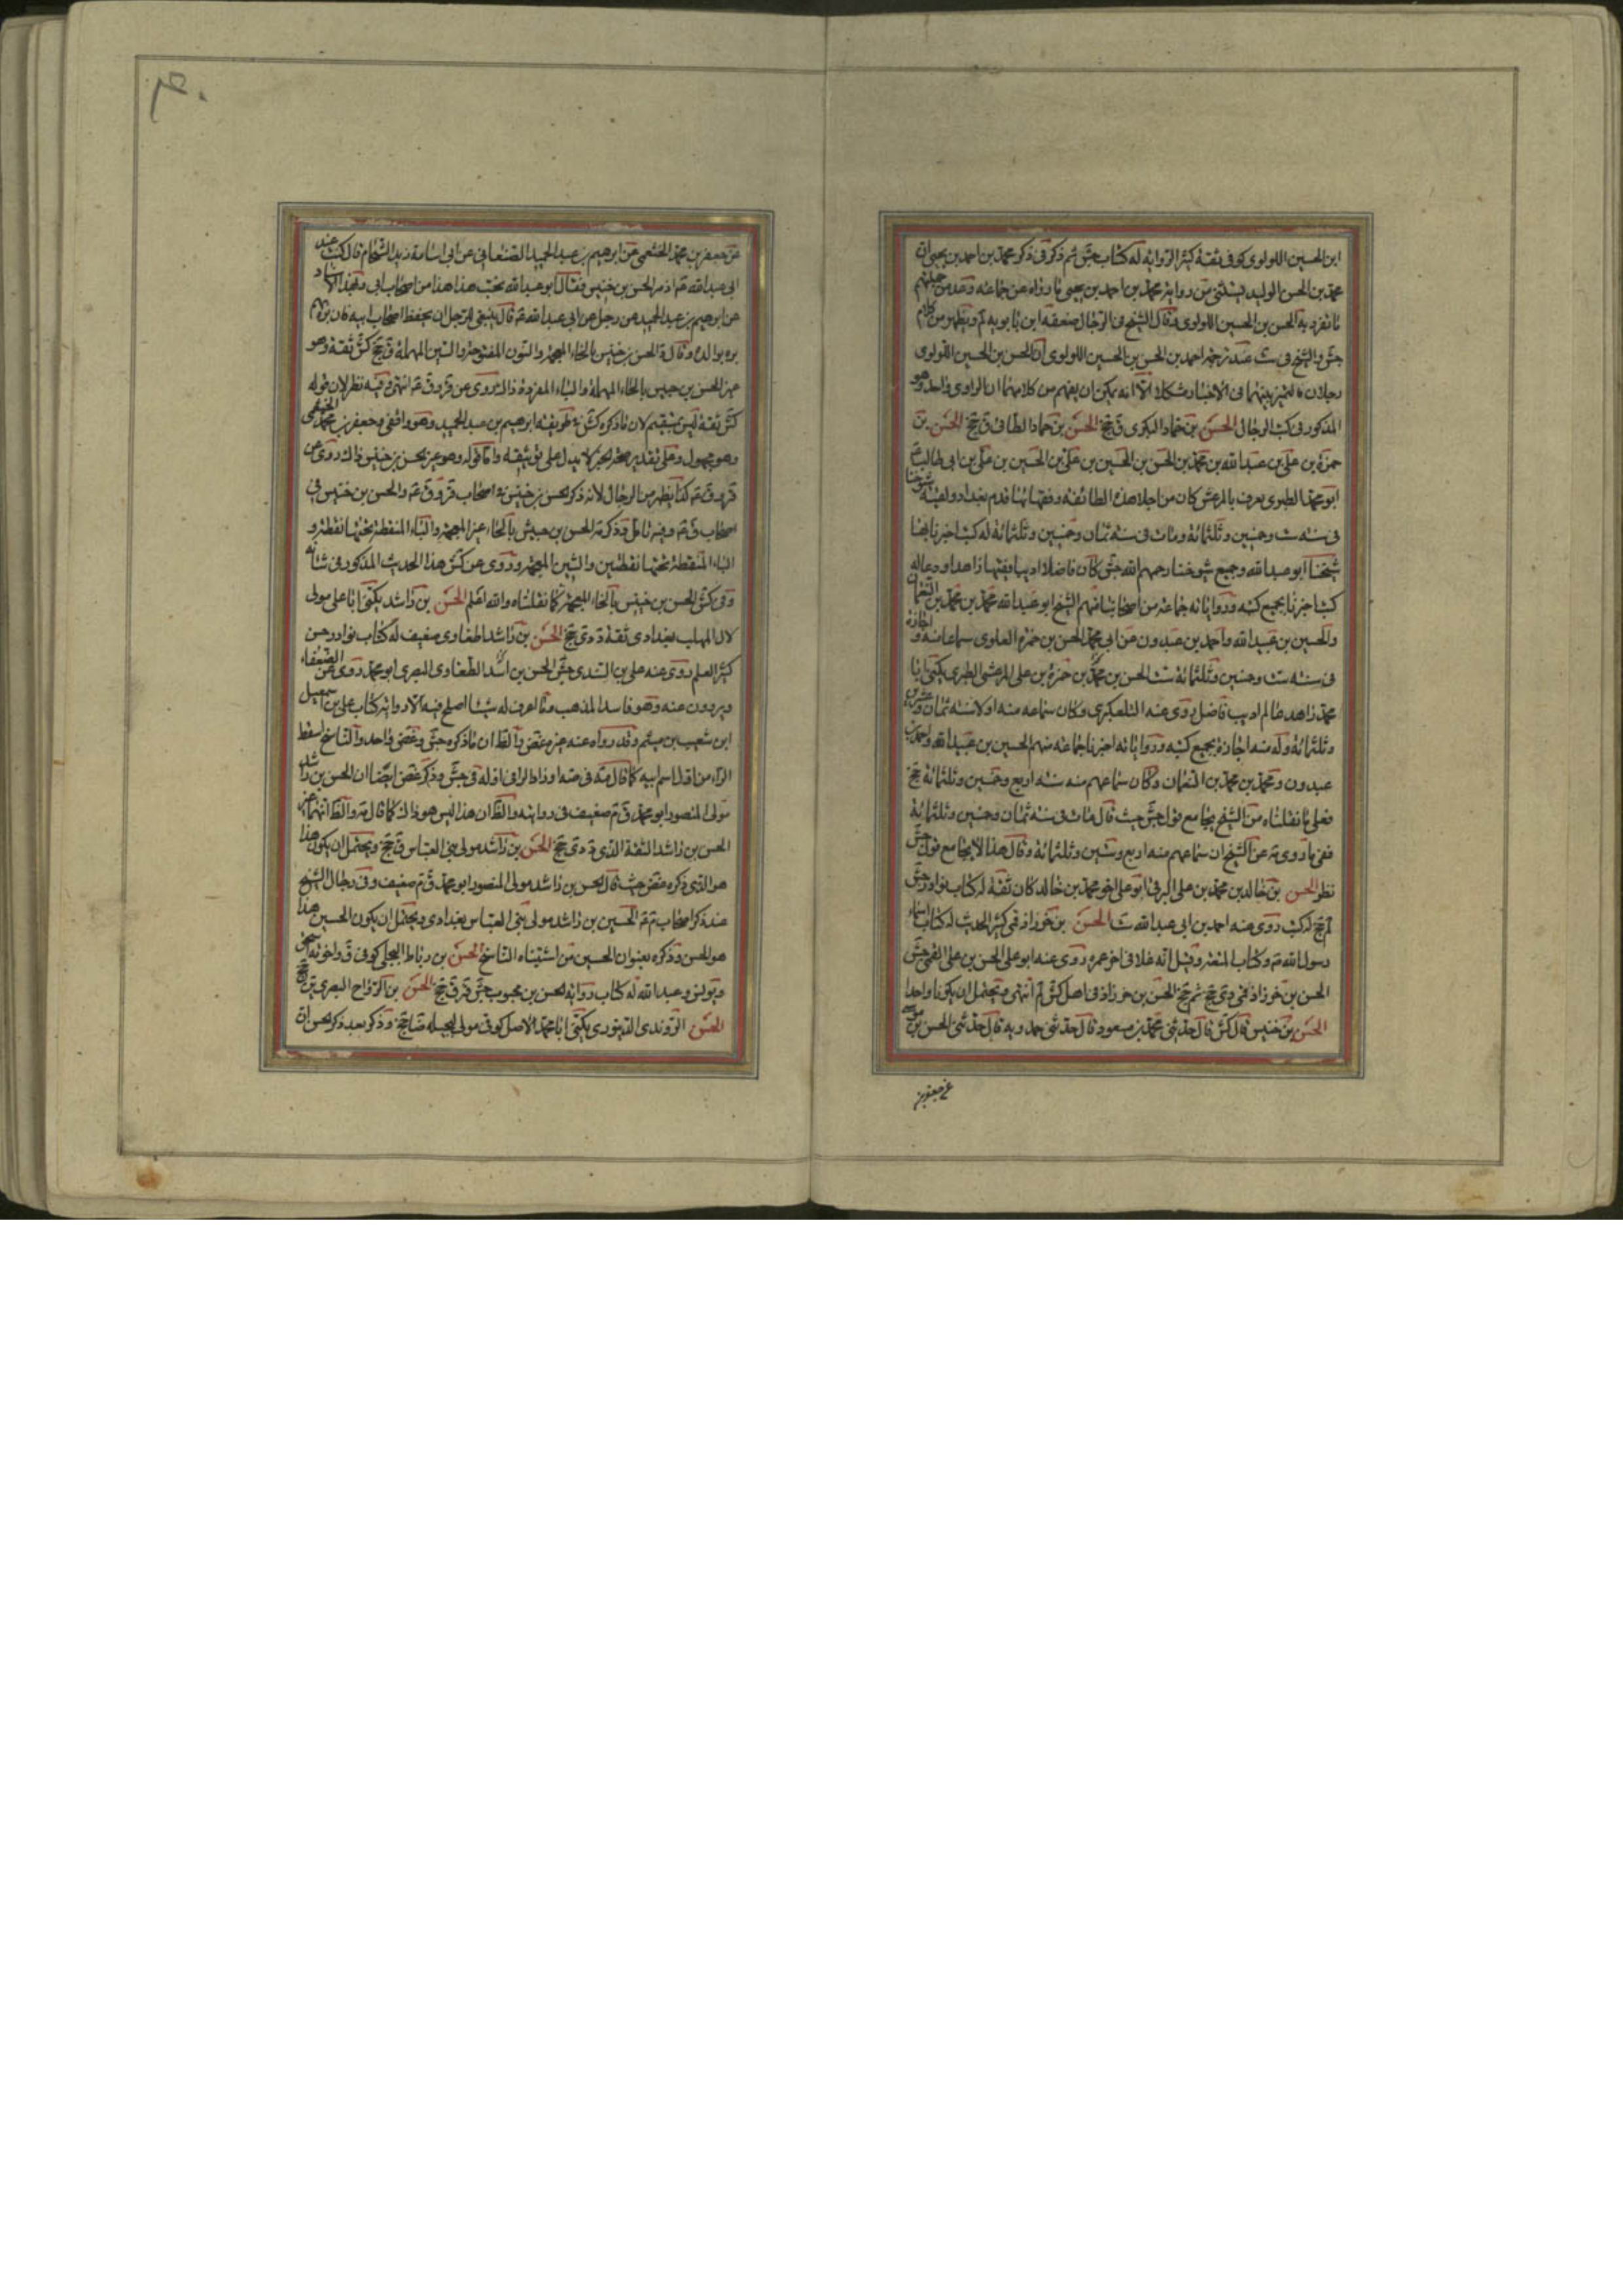 ابن الحسين اللولوى كوفى ثقة كثير الرواية له كتاب جش ثم ذكر فى ذكر محمد بن احمد بن يحيى ان
محمد بن الحسن الوليد يستثنى من رواية محمد بن احمد بن يحيى ما رواه عن جماعة وعد من جملتهم
ما تفرد به الحسن بن الحسين اللولوى وقال الشيخ فى الرجال ضعفه ابن بابويه لم ويظهر من كلام
جش والشيخ فى ست عند ترجمة احمد بن الحسن بن الحسين اللولوى ان الحسن بن الحسين اللولوى
رجلان فالتميز بينهما فى الاخبار مشكل الا انه يمكن ان يفهم من كلامهما ان الراوى واحد وهو
المذكور فى كتب الرجال الحسن بن حماد البكرى ق جخ الحسن بن حماد الطائى ق جخ الحسن بن
حمزة بن على بن عبد الله بن محمد بن الحسن بن الحسين بن على بن الحسين بن على بن ابى طالب ع
ابو محمد الطبرى يعرف بالمرعش كان من اجلاء هذه الطائفة وفقهائها قدم بغداد ولقيه شيوخنا
فى سنة ست وخمسين وثلثمائة ومات فى سنة ثمان وخمسين وثلثمائة له كتب اخبرنا بها
شيخنا ابو عبد الله وجميع شيوخنا رحمهم الله جش كان فاضلا اديبا فقيها زاهدا ورعا له
كتب اخبرنا بجميع كتبه ورواياته جماعة من اصحابنا منهم الشيخ ابو عبد الله محمد بن محمد بن النعمان
والحسين بن عبيد الله واحمد بن عبدون عن ابى محمد الحسن بن حمزة العلوى سماعا منه و اجازة
فى سنة ست وخمسين وثلثمائة ست الحسن بن محمد بن حمزة بن على المرعشى الطبرى يكنى ابا
محمد زاهد عالم اديب فاضل روى عنه التلعكبرى وكان سماعه منه اولا سنة ثمان وعشرين
وثلثمائة وله منه اجازة بجميع كتبه ورواياته اخبرنا جماعة منهم الحسين بن عبيد الله واحمد بن
عبدون ومحمد بن محمد بن النعمان وكان سماعهم منه سنة اربع وخمسين وثلثمائة جخ
فعلى ما نقلناه من الشيخ يجامع قول جش حيث قال مات فى سنة ثمان وخمسين وثلثمائة
ففى ما روى مه عن الشيخ ان سماعهم منه اربع وستين وثلثمائة وقال هذا لا يجامع قول جش
نظر الحسن بن خالد بن محمد بن على البرقى ابو على اخو محمد بن خالد كان ثقة له كتاب نوادر جش
لم جخ له كتب روى عنه احمد بن ابى عبد الله ست الحسن بن خرزاذ قمى كثير الحديث له كتاب اسماء
رسول الله ص وكتاب المتعة وقيل انه غلا فى اخر عمره روى عنه ابو على الحسن بن على القمى جش
الحسن بن خرزاذ قمى دى جخ ثم جخ الحسن بن خرزاذ فى اصل كش لم انتهى ويحتمل ان يكونا واحدا
الحسن بن خنيس قال كش قال حدثنى محمد بن مسعود قال حدثنى حمدويه قال حدثنى الحسن بن موسى
عن جعفر بن
عن جعفر بن محمد الخثعمى عن ابرهيم بن عبد الحميد الصنعانى عن ابى اسامة زيد الشحام قال كنت عند
ابى عبد الله ع اذ مر الحسن بن خنيس فقال ابو عبد الله تحب هذا هذا من اصحاب ابى وبهذا الاسناد
عن ابرهيم بن عبد الحميد عن رجل عن ابى عبد الله ع قال ينبغى للرجل ان يحفظ اصحاب ابيه فان بره بهم
بره بوالده وقال د الحسن بن خنيس بالخاء المعجمة والنون المفتوحة والسين المهملة ق جخ كش ثقة وهو
غير الحسن بن حبيس بالحاء المهملة والباء المفردة ذاك روى عن قر وق ع انتهى وفيه نظر لان قوله
كش ثقة ليس بمستقيم لان ما ذكره كش فى طريقه ابرهيم بن عبد الحميد وهو واقفى وجعفر بن محمد الخثعمى
وهو مجهول وعلى تقدير صحة الخبر لا يدل على توثيقه واما قوله وهو غير الحسن بن خنيس ذاك روى عن
قر وق ع كما يظهر من الرجال لانه ذكر الحسن بن خنيس فى اصحاب قر وق ع والحسن بن خنيس فى
اصحاب ق ع وفيه تامل وذكر مه الحسن بن حبيش بالحاء غير المعجمة والباء المنقطة تحتها نقطة و
الياء المنقطة تحتها نقطتين والشين المعجمة وروى عن كش هذا الحديث المذكور فى شانه
وفى كش الحسن بن خنيس بالخاء المعجمة كما نقلناه والله اعلم الحسن بن راشد يكنى ابا على مولى
لال المهلب بغدادى ثقة د دى جخ الحسن بن راشد الطفاوى ضعيف له كتاب نوادر حسن
كثير العلم روى عنه على بن السندى جش الحسن بن اسد الطفاوى البصرى ابو محمد روى عن الضعفاء
ويروون عنه وهو فاسد المذهب وما اعرف له شيئا اصلح فيه الا روايته كتاب على بن اسمعيل
ابن شعيب بن ميثم وقد رواه عنه غيره غض والظ ان ما ذكره جش وغض واحد والناسخ اسقط
الراء من اول اسم ابيه كما قال مه فى صه او زاد الراء فى اوله فى جش وذكر غض ايضا ان الحسن بن راشد
مولى المنصور ابو محمد ق م ضعيف فى روايته والظ ان هذا ليس هو ذاك كما قال مه والظ انهما غير
الحسن بن راشد الثقة الذى د دى جخ الحسن بن راشد مولى بنى العباس ق جخ ويحتمل ان يكون هذا
هو الذى ذكره غض حيث قال الحسن بن راشد مولى المنصور ابو محمد ق م ضعيف وفى رجال الشيخ
عند ذكر اصحاب م ع الحسين بن راشد مولى بنى العباس بغدادى ويحتمل ان يكون الحسين هذا
هو الحسن وذكره بعنوان الحسين من اشتباه الناسخ الحسن بن رباط البجلى كوفى ق واخوته اسحق
ويونس وعبد الله له كتاب رواية الحسن بن محبوب جش قر ق جخ الحسن بن الزرواح البصرى ق جخ
الحسن الروندى الدينورى يكنى ابا محمد الاصل كوفى مولى البجيلة ضا جخ وذكر بعد ذكر الحسن ان